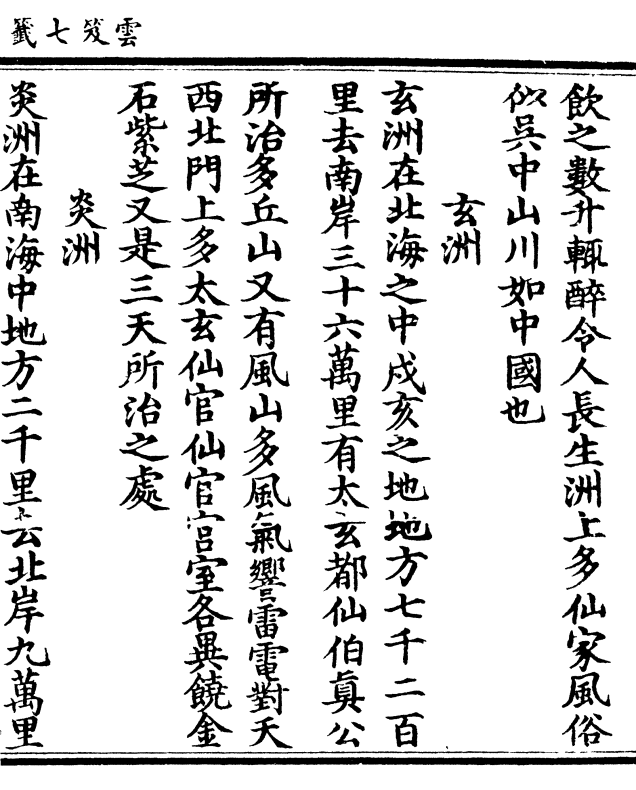 雲笈七籤
飲之數升輒醉令人長生洲上多仙家風俗
似吳中山川如中國也
玄洲
玄洲在北海之中戌亥之地地方七千二百
里去南岸三十六萬里有太玄都仙伯眞公
所治多丘山又有風山多風氣響雷電對天
西北門上多太玄仙官仙官宮室各異饒金
石紫芝又是三天所治之處
炎洲
炎洲在南海中地方二千里去北岸九萬里